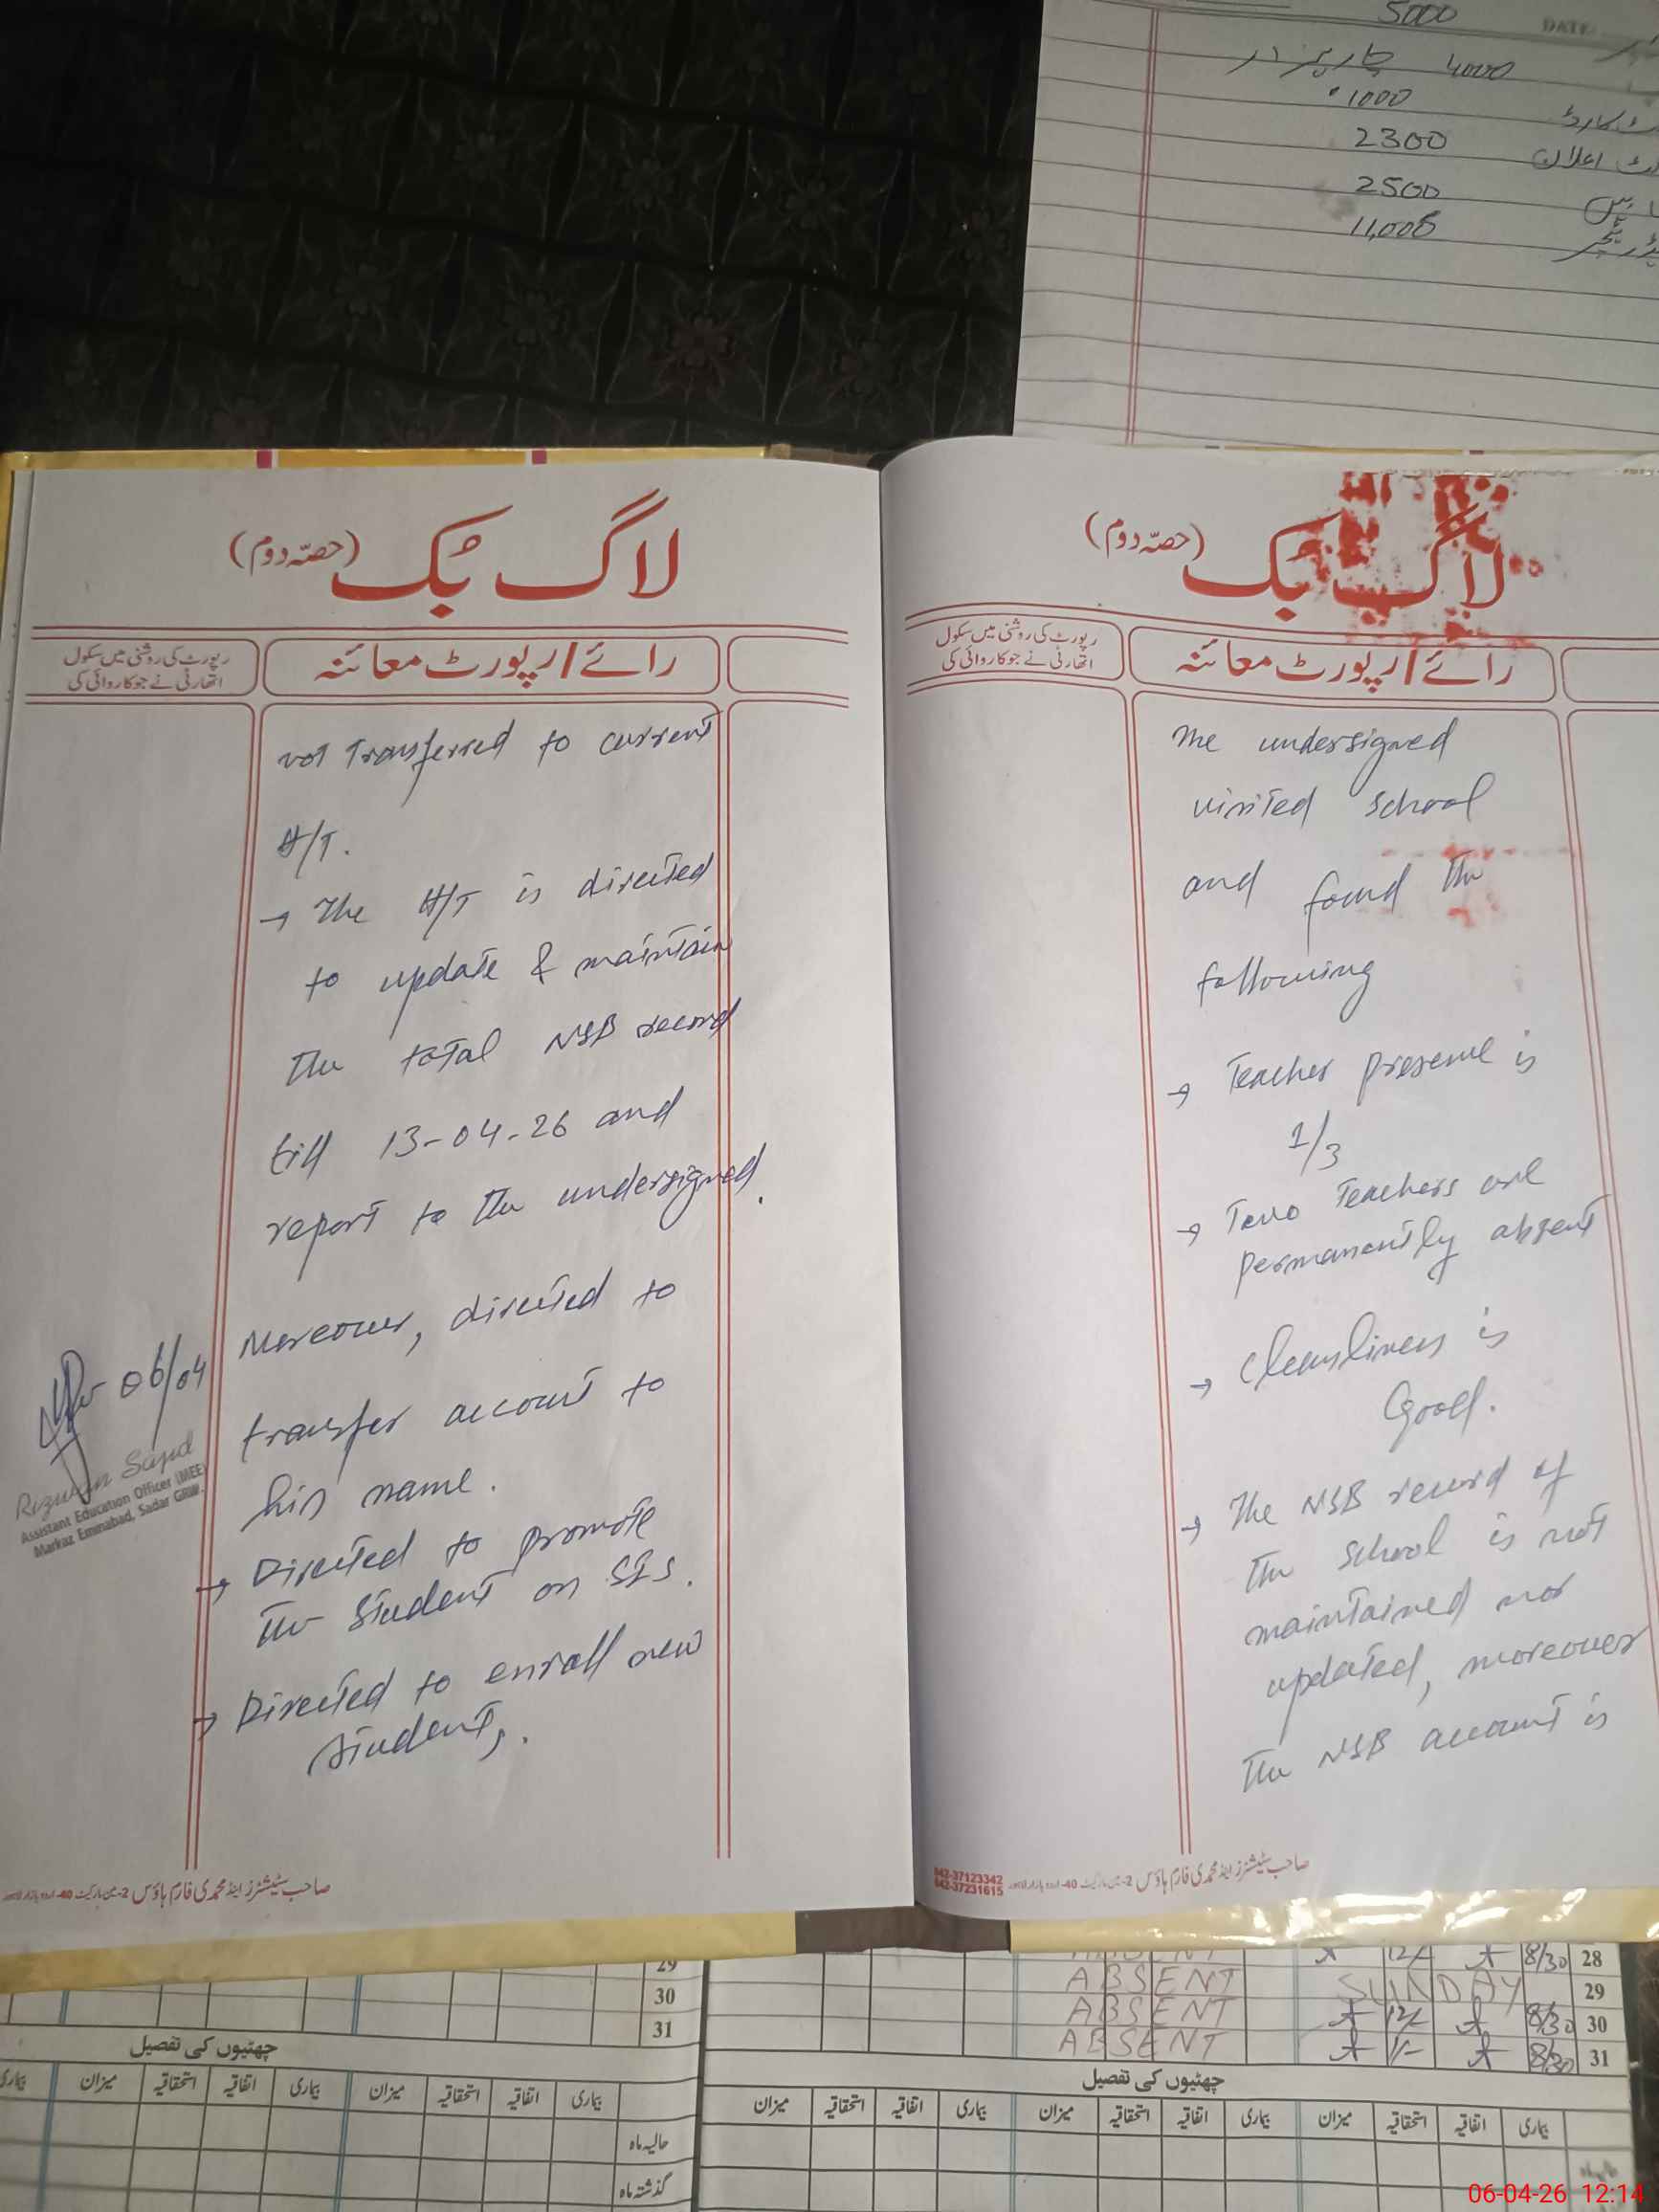 5000
DATE:
4000
1000
2300
اعلان
2500
11,000
لاگ بُک (حصّہ دوم)
رائے / رپورٹ معائنہ
رپورٹ کی روشنی میں سکول
اتھارٹی نے جو کاروائی کی
The undersigned
visited school
and found the
following
→ Teacher presence is
1/3
→ Two Teachers are
permanently absent
→ Cleanliness is
Good.
→ The NSB record of
the school is not
maintained nor
updated, moreover
The NSB account is
صاحب سٹیشنرز اینڈ محمدی فارم ہاؤس 2-مین مارکیٹ 40-اردو بازار لاہور
042-37123342
042-37231615
لاگ بُک (حصّہ دوم)
رائے / رپورٹ معائنہ
رپورٹ کی روشنی میں سکول
اتھارٹی نے جو کاروائی کی
not transferred to current
H/T.
→ The H/T is directed
to update & maintain
the total NSB record
till 13-04-26 and
report to the undersigned.
Moreover, directed to
transfer account to
his name.
→ Directed to promote
the student on SIS.
→ Directed to enroll new
students.
06/04
Rizwan Sajid
Assistant Education Officer (MEE)
Markaz Emnabad, Sadar GRW.
صاحب سٹیشنرز اینڈ محمدی فارم ہاؤس 2-مین مارکیٹ 40-اردو بازار لاہور
ABSENT 12/ 8/30 28
ABSENT SUNDAY 29
ABSENT 12/ 8/30 30
ABSENT 8/30 31
چھٹیوں کی تفصیل
بیماری اتفاقیہ استحقاقیہ میزان بیماری اتفاقیہ استحقاقیہ میزان بیماری اتفاقیہ استحقاقیہ میزان
29
30
31
چھٹیوں کی تفصیل
بیماری اتفاقیہ استحقاقیہ میزان بیماری اتفاقیہ استحقاقیہ میزان بیماری
حالیہ ماہ
گذشتہ ماہ
06-04-26 12:14